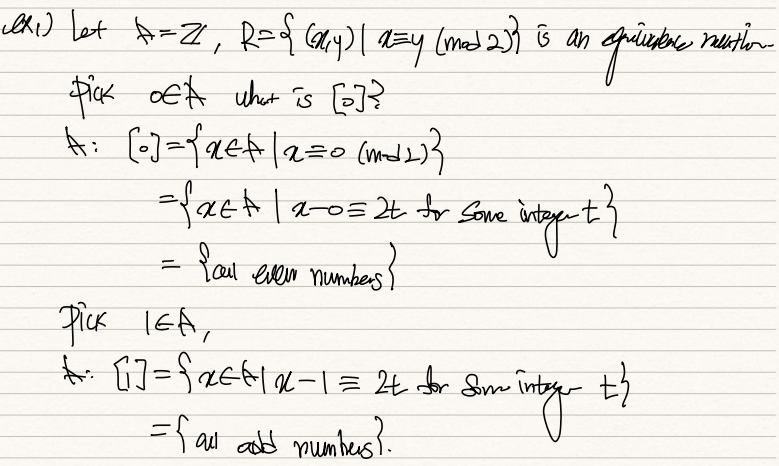 ex1) Let A=ℤ, R={(x,y) | x≡y (mod 2)} is an equivalence relation
Pick 0∈A what is [0]?
A: [0]={x∈A | x≡0 (mod 2)}
={x∈A | x-0≡2t for some integer t}
= {all even numbers}
Pick 1∈A,
A: [1]={x∈A | x-1≡2t for some integer t}
={all odd numbers}.